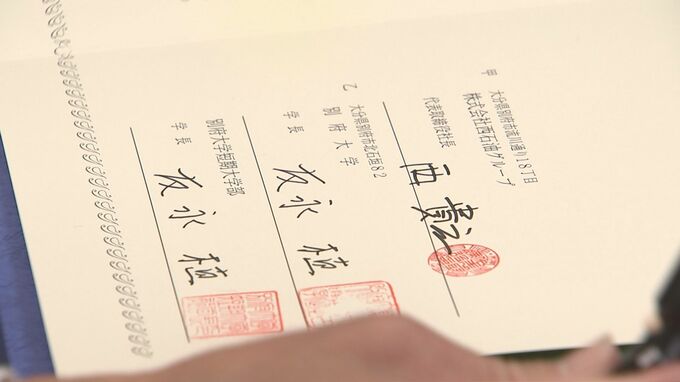 甲 大分県別府市流川通り18丁目
株式会社西石油グループ
代表取締役社長
西 貴之
乙 大分県別府市北石垣82
別府大学
学長
友永 植
別府大学短期大学部
学長
友永 植